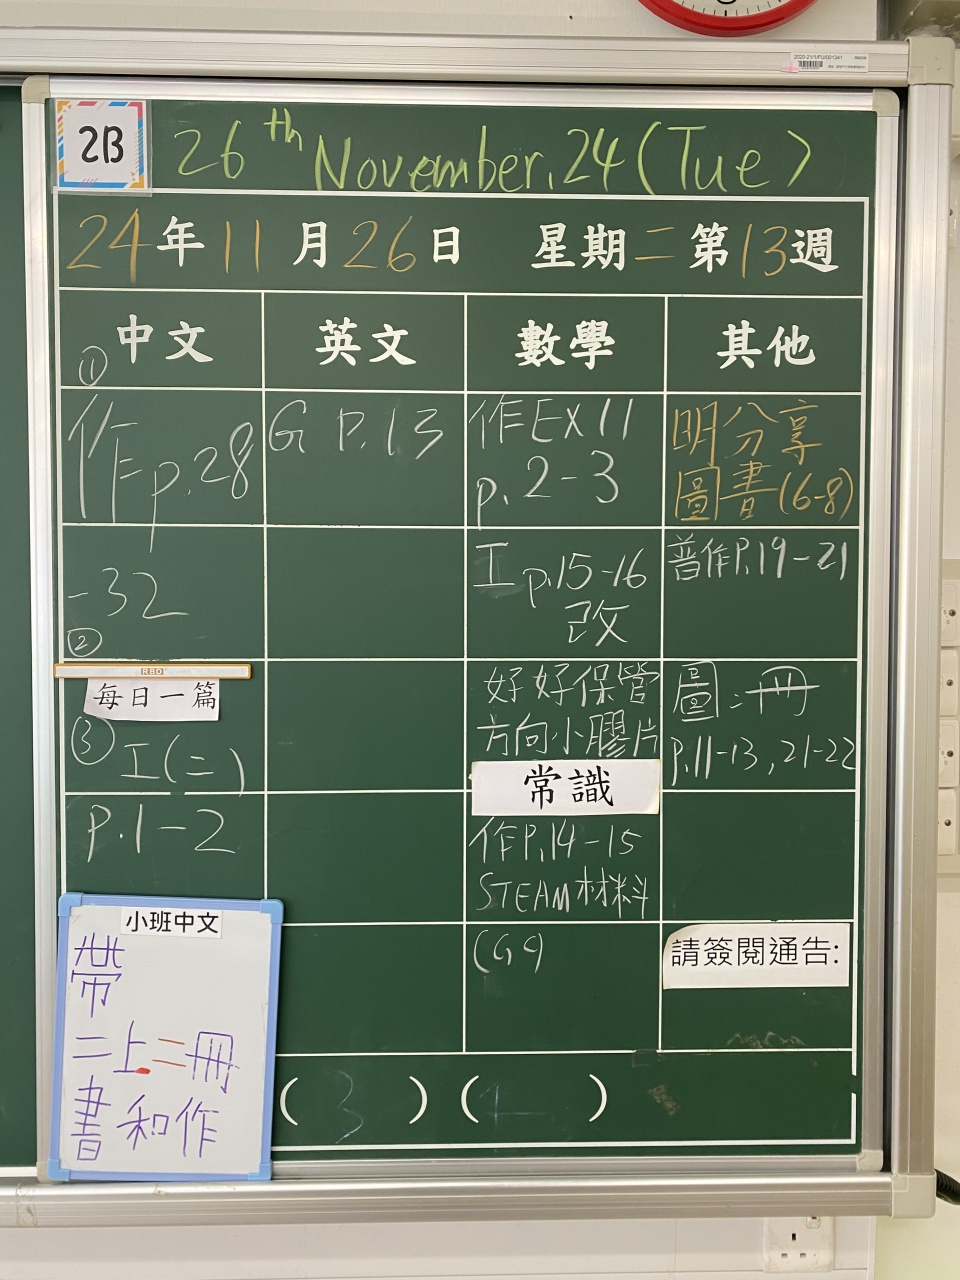 2B
26th November, 24 (Tue)
24年11月26日 星期二第13週
中文
①
作p.28
-32
②
RBD
每日一篇
③ 工(二)
p.1-2
小班中文
帶
二上二冊
書和作
英文
G P.13
數學
作EX11
p.2-3
工p.15-16
改
好好保管
方向小膠片
常識
作P.14-15
STEAM材料
(G9)
其他
明分享
圖書(6-8)
普作P.19-21
圖:冊
P.11-13,21-22
請簽閱通告:
( 3 ) ( 1 )